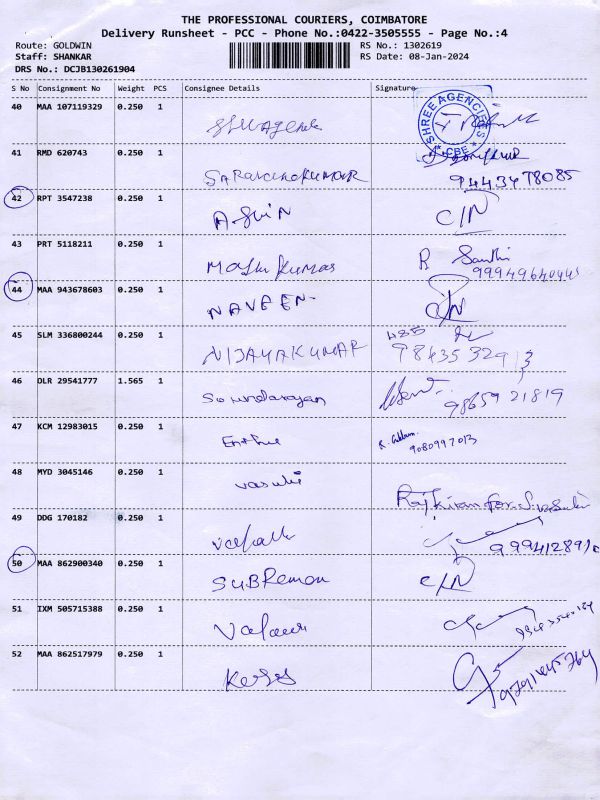 THE PROFESSIONAL COURIERS, COIMBATORE
Delivery Runsheet - PCC - Phone No.:0422-3505555 - Page No.:4
Route: GOLDWIN RS No.: 1302619
Staff: SHANKAR RS Date: 08-Jan-2024
DRS No.: DCJB130261904
S No Consignment No Weight PCS Consignee Details Signature
40 MAA 107119329 0.250 1
SHREE AGENCIES
* CBE *
41 RMD 620743 0.250 1
SARAVANAKUMAR 9443478085
42 RPT 3547238 0.250 1
ASWIN C/N
43 PRT 5118211 0.250 1
R Santhi
44 MAA 943678603 0.250 1
NAVEEN C/N
45 SLM 336800244 0.250 1
VIJAYAKUMAR
46 DLR 29541777 1.565 1
Soundarayan 98659 21819
47 KCM 12983015 0.250 1
9080997013
48 MYD 3045146 0.250 1
vasuki Rajkiran for
49 DDG 170182 0.250 1
50 MAA 862900340 0.250 1
SUBRemon C/N
51 IXM 505715388 0.250 1
52 MAA 862517979 0.250 1